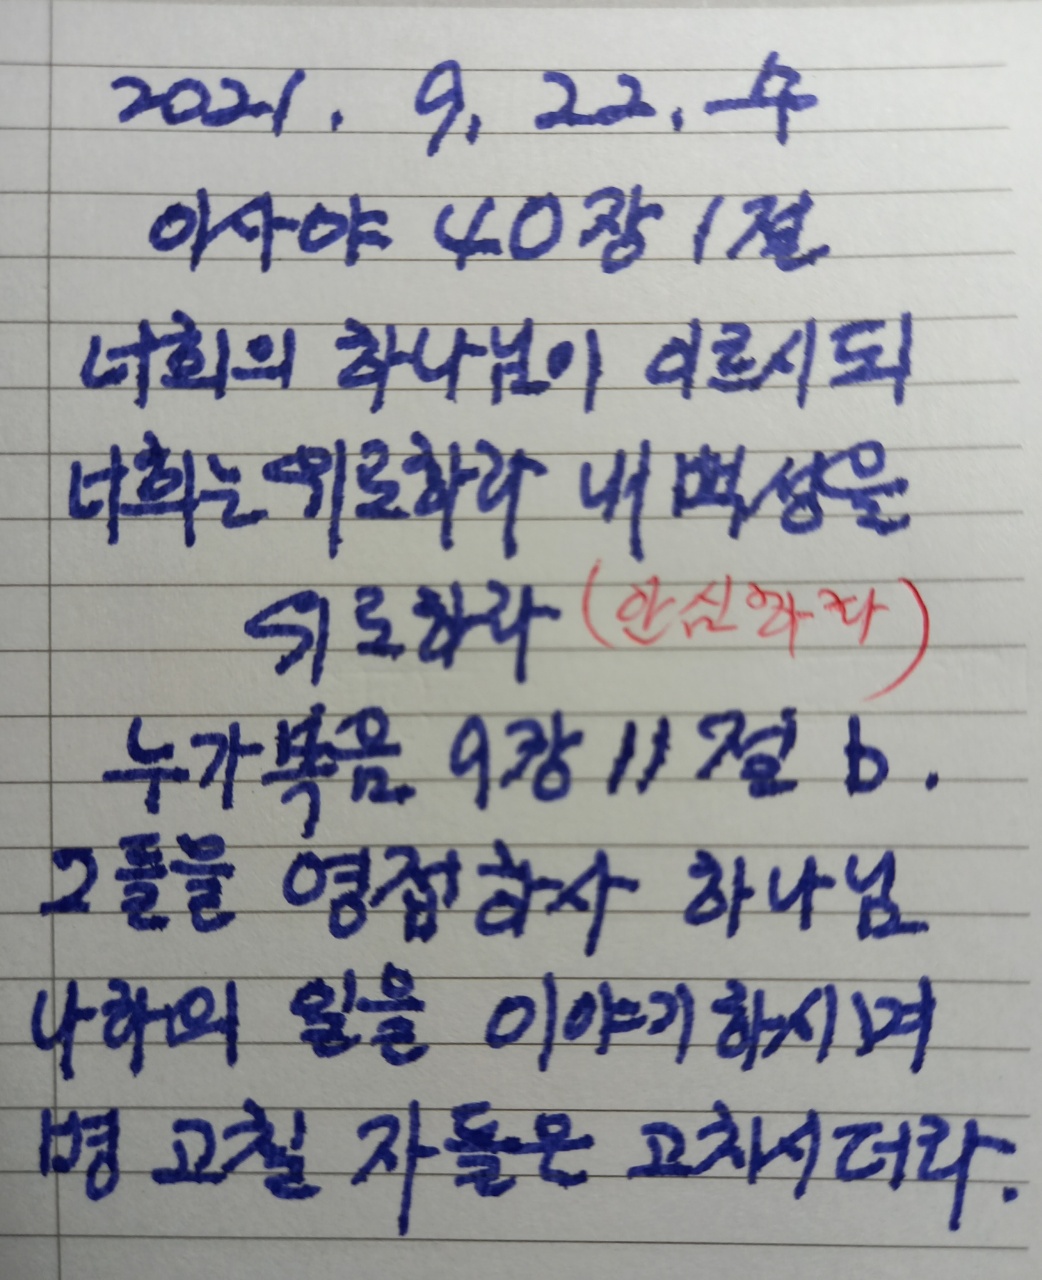 2021. 9. 22. 수
이사야 40장 1절
너희의 하나님이 이르시되
너희는 위로하라 내 백성을
위로하라 (안심하라)
누가복음 9장 11절 b.
그들을 영접하사 하나님
나라의 일을 이야기하시며
병 고칠 자들은 고치시더라.